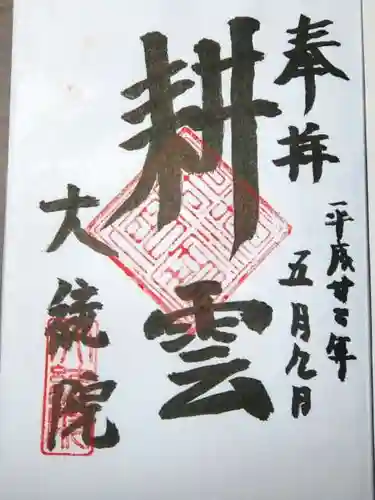 奉拝
平成廿七年
五月九日
耕雲
大統院